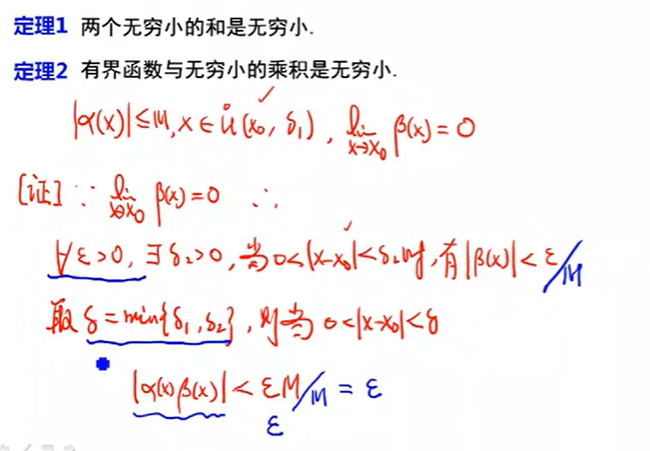 定理1 两个无穷小的和是无穷小.
定理2 有界函数与无穷小的乘积是无穷小.
|α(x)|≤M, x∈Ů(x₀, δ₁), lim_{x→x₀} β(x)=0
[证] ∵ lim_{x→x₀} β(x)=0 ∴
∀ε>0, ∃δ₂>0, 当0<|x-x₀|<δ₂时, 有|β(x)|<ε/M
取δ=min{δ₁,δ₂}, 则当 0<|x-x₀|<δ
|α(x)β(x)| < εM/M = ε
ε